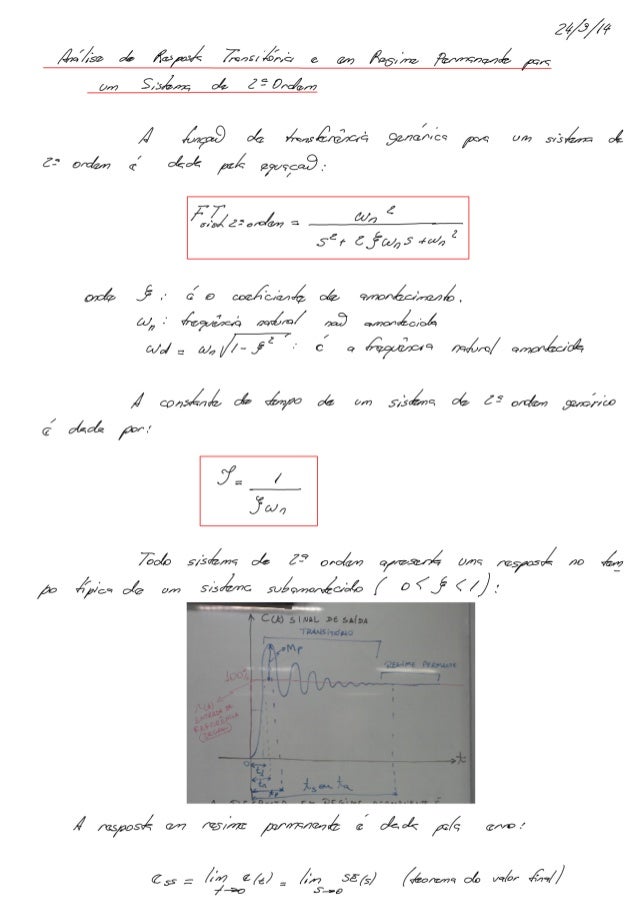 24/3/14
Análise de Resposta Transitória e em Regime Permanente para
um Sistema de 2ª Ordem
A função de transferência genérica para um sistema de
2ª ordem é dada pela equação:
F.T. sist. 2ª ordem = ωn² / (s² + 2ξωn s + ωn²)
onde ξ: é o coeficiente de amortecimento.
ωn: frequência natural não amortecida
ωd = ωn√(1-ξ²): é a frequência natural amortecida
A constante de tempo de um sistema de 2ª ordem genérico
é dada por:
𝒯 = 1 / (ξωn)
Todo sistema de 2ª ordem apresenta uma resposta no tem
po típica de um sistema subamortecido (0<ξ<1):
C(t) SINAL DE SAÍDA
TRANSITÓRIO
Mp
REGIME PERMANENTE
100%
r(t)
ENTRADA DE
REFERÊNCIA
(DEGRAU)
0
t
td
tr
tp
ts ou ta
A resposta em regime permanente é dada pelo erro:
ess = lim t→∞ e(t) = lim s→0 sE(s) (teorema do valor final)